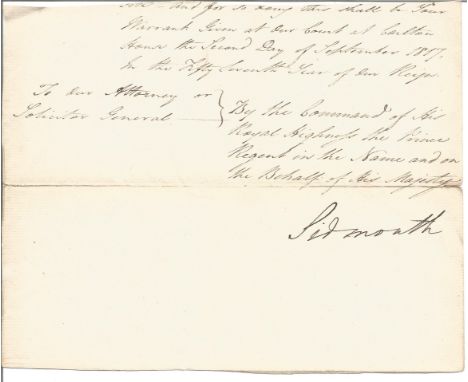 and for so doing this shall be Your
Warrant Given at Our Court at Carlton
House the Second Day of September 1817.
In the Fifty Seventh Year of Our Reign.
To our Attorney or
Solicitor General
By the Command of His
Royal Highness the Prince
Regent in the Name and on
the Behalf of His Majesty
Sidmouth